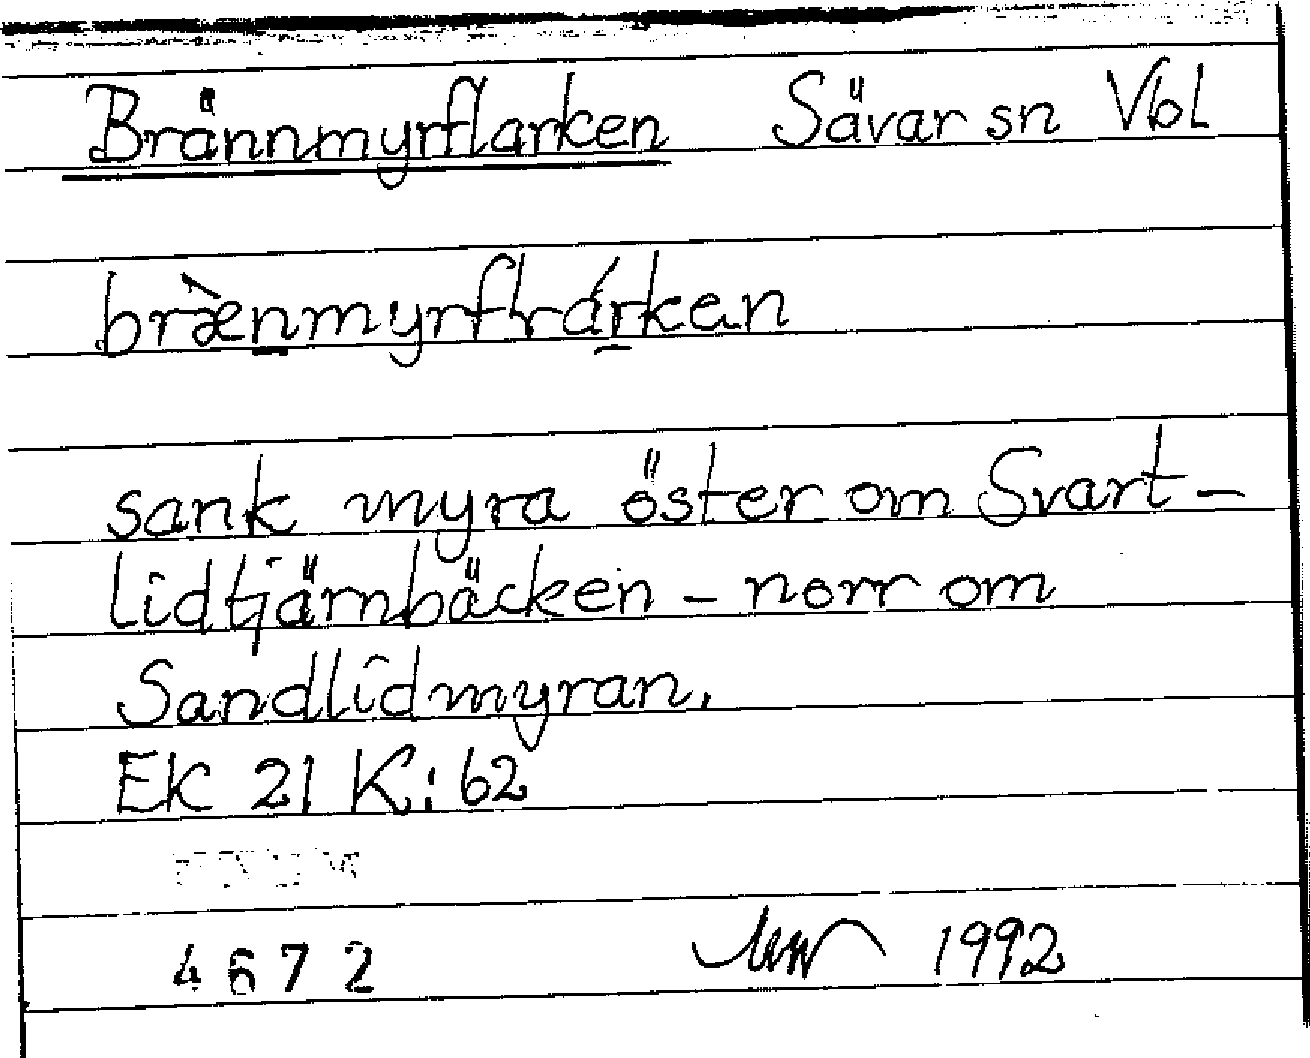 Brännmyrflarken Sävar sn Vbl
bræ̀nmyrflrárkan
sank myra öster om Svart-
lidtjärnbäcken - norr om
Sandlidmyran.
EK 21 K:62
4672 1992